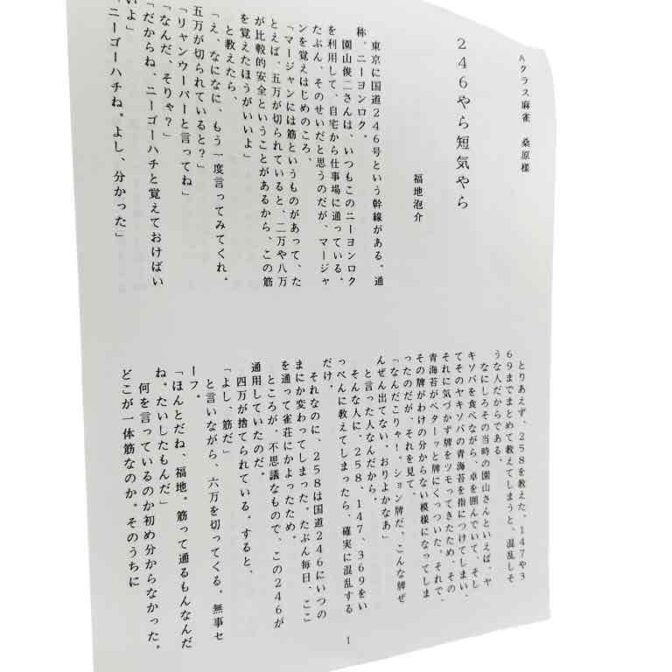 Aクラス麻雀　桑原様
２４６やら短気やら
福地泡介
東京に国道２４６号という幹線がある。通
称、ニーヨンロク。
園山俊二さんは、いつもこのニーヨンロク
を利用して、自宅から仕事場に通っている。
たぶん、そのせいだと思うのだが、マージャ
ンを覚えはじめのころ、
「マージャンには筋というものがあって、た
とえば、五万が切られていると、二万や八万
が比較的安全ということがあるから、この筋
を覚えたほうがいいよ」
と教えたら、
「え、なになに、もう一度言ってみてくれ。
五万が切られていると？」
「リャンウーパーと言ってね」
「なんだ、そりゃ？」
「だからね、ニーゴーハチと覚えておけばい
いよ」
「ニーゴーハチね。よし、分かった」
とりあえず、２５８を教えた。１４７や３
６９までまとめて教えてしまうと、混乱しそ
うな人だからである。
なにしろその当時の園山さんといえば、ヤ
キソバを食べながら、卓を囲んでいて、そし
てそのヤキソバの青海苔を指につけてしまい、
それに気づかず牌をツモってきたため、その
青海苔がベターッと牌にくっついた。それで、
その牌がわけの分からない模様になってしま
ったのだが、それを見て、
「なんだこりゃ！、ション牌だ、こんな牌ぜ
んぜん出てない、おりよかなあ」
と言った人なんだから。
そんな人に、２５８、１４７、３６９をいっ
ぺんに教えてしまったら、確実に混乱する
だけ。
それなのに、２５８は国道２４６にいつの
まにか変わってしまった。たぶん毎日、ここ
を通って雀荘にかよったため。
ところが、不思議なもので、この２４６が
通用していたのだ。
四万が捨てられている。すると、
「よし、筋だ」
と言いながら、六万を切ってくる。無事セ
ーフ。
「ほんとだね、福地。筋って通るもんなんだ
ね。たいしたもんだ」
何を言っているのか初め分からなかった。
どこが一体筋なのか。そのうちに
1